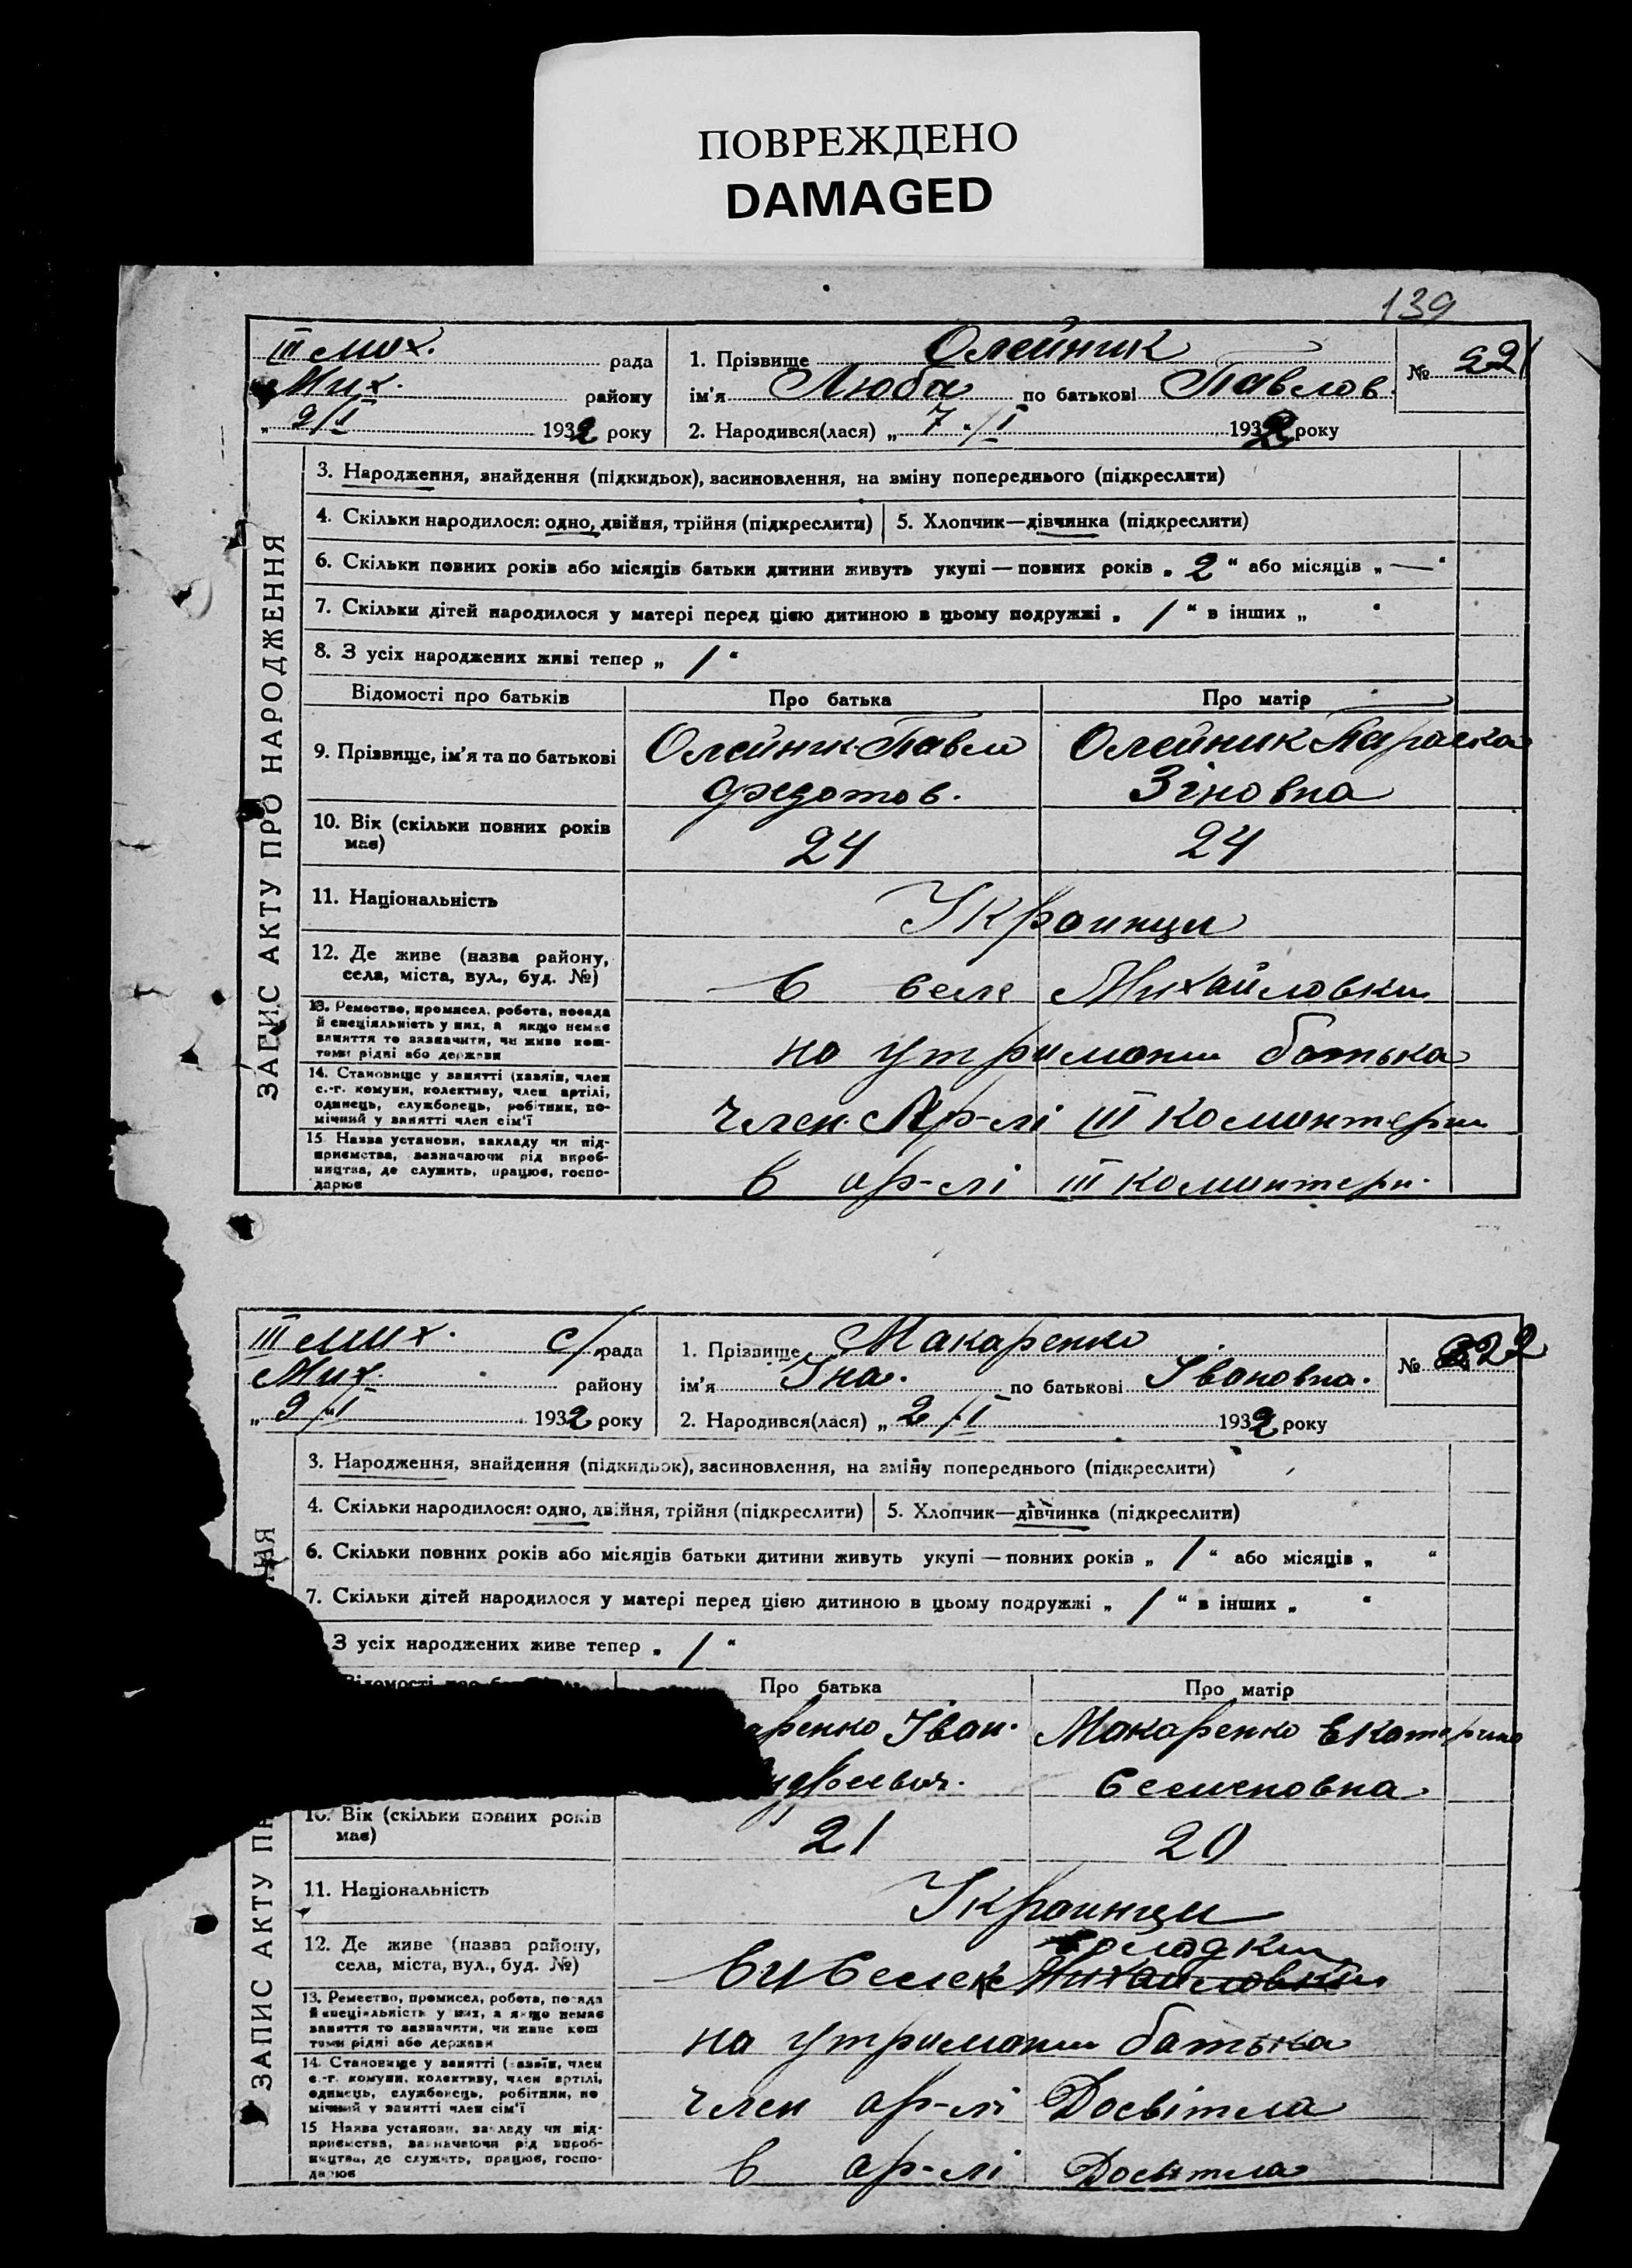 ПОВРЕЖДЕНО
DAMAGED
139
III мих. рада
Мих. району
„ 9/I 1932 року
1. Прізвище Олейник
ім'я Люба по батькові Павлов.
2. Народився(лася) „ 7 “/I 1932 року
№ 221
ЗАПИС АКТУ ПРО НАРОДЖЕННЯ
3. Народження, знайдення (підкидьок), засиновлення, на зміну попереднього (підкреслити)
4. Скільки народилося: одно, двійня, трійня (підкреслити) 5. Хлопчик—дівчинка (підкреслити)
6. Скільки повних років або місяців батьки дитини живуть укупі — повних років „ 2 “ або місяців „ — “
7. Скільки дітей народилося у матері перед цією дитиною в цьому подружжі „ 1 “ в інших „ “
8. З усіх народжених живі тепер „ 1 “
Відомості про батьків Про батька Про матір
9. Прізвище, ім'я та по батькові
Олейник Павло
Федотов.
Олейник Параска
Зіновна
10. Вік (скільки повних років має) 24 24
11. Національність Украинци
12. Де живе (назва району, села, міста, вул., буд. №) в селе Михайловки
13. Ремество, промисел, робота, посада й спеціяльність у них, а якщо немає заняття то зазначити, чи живе коштоми рідні або держави
на утримані батька
14. Становище у занятті (хазяїн, член с.-г. комуни, колективу, член артілі, одинець, службовець, робітник, помічний у занятті член сім'ї
член Ар-лі III Коминтерн
15. Назва установи, закладу чи підприємства, зазначаючи рід виробництва, де служить, працює, господарює
в ар-лі III Коминтерн.
III мих. с/рада
Мих. району
„ 9/I 1932 року
1. Прізвище Макаренко
ім'я Іна. по батькові Івановна.
2. Народився(лася) „ 2 /I 1932 року
№ 222
3. Народження, знайдення (підкидьок), засиновлення, на зміну попереднього (підкреслити)
4. Скільки народилося: одно, двійня, трійня (підкреслити) 5. Хлопчик—дівчинка (підкреслити)
6. Скільки повних років або місяців батьки дитини живуть укупі — повних років „ 1 “ або місяців „ “
7. Скільки дітей народилося у матері перед цією дитиною в цьому подружжі „ 1 “ в інших „ “
З усіх народжених живе тепер „ 1 “
Відомості Про батька Про матір
аренко Іван.
ндреевич.
Макаренко Екатерина
Семеновна
10. Вік (скільки повних років має) 21 20
11. Національність Украинци
12. Де живе (назва району, села, міста, вул., буд. №)
Михайловки
13. Ремество, промисел, робота, посада й спеціяльність у них, а якщо немає заняття то зазначити, чи живе коштоми рідні або держави
на утримані батька
14. Становище у занятті (хазяїн, член с.-г. комуни, колективу, член артілі, одинець, службовець, робітник, помічний у занятті член сім'ї
член ар-лі Досвітела
15 Назва установи, закладу чи підприємства, зазначаючи рід виробництва, де служить, працює, господарює
в ар-лі Досвітела
ЗАПИС АКТУ ПР
НЯ